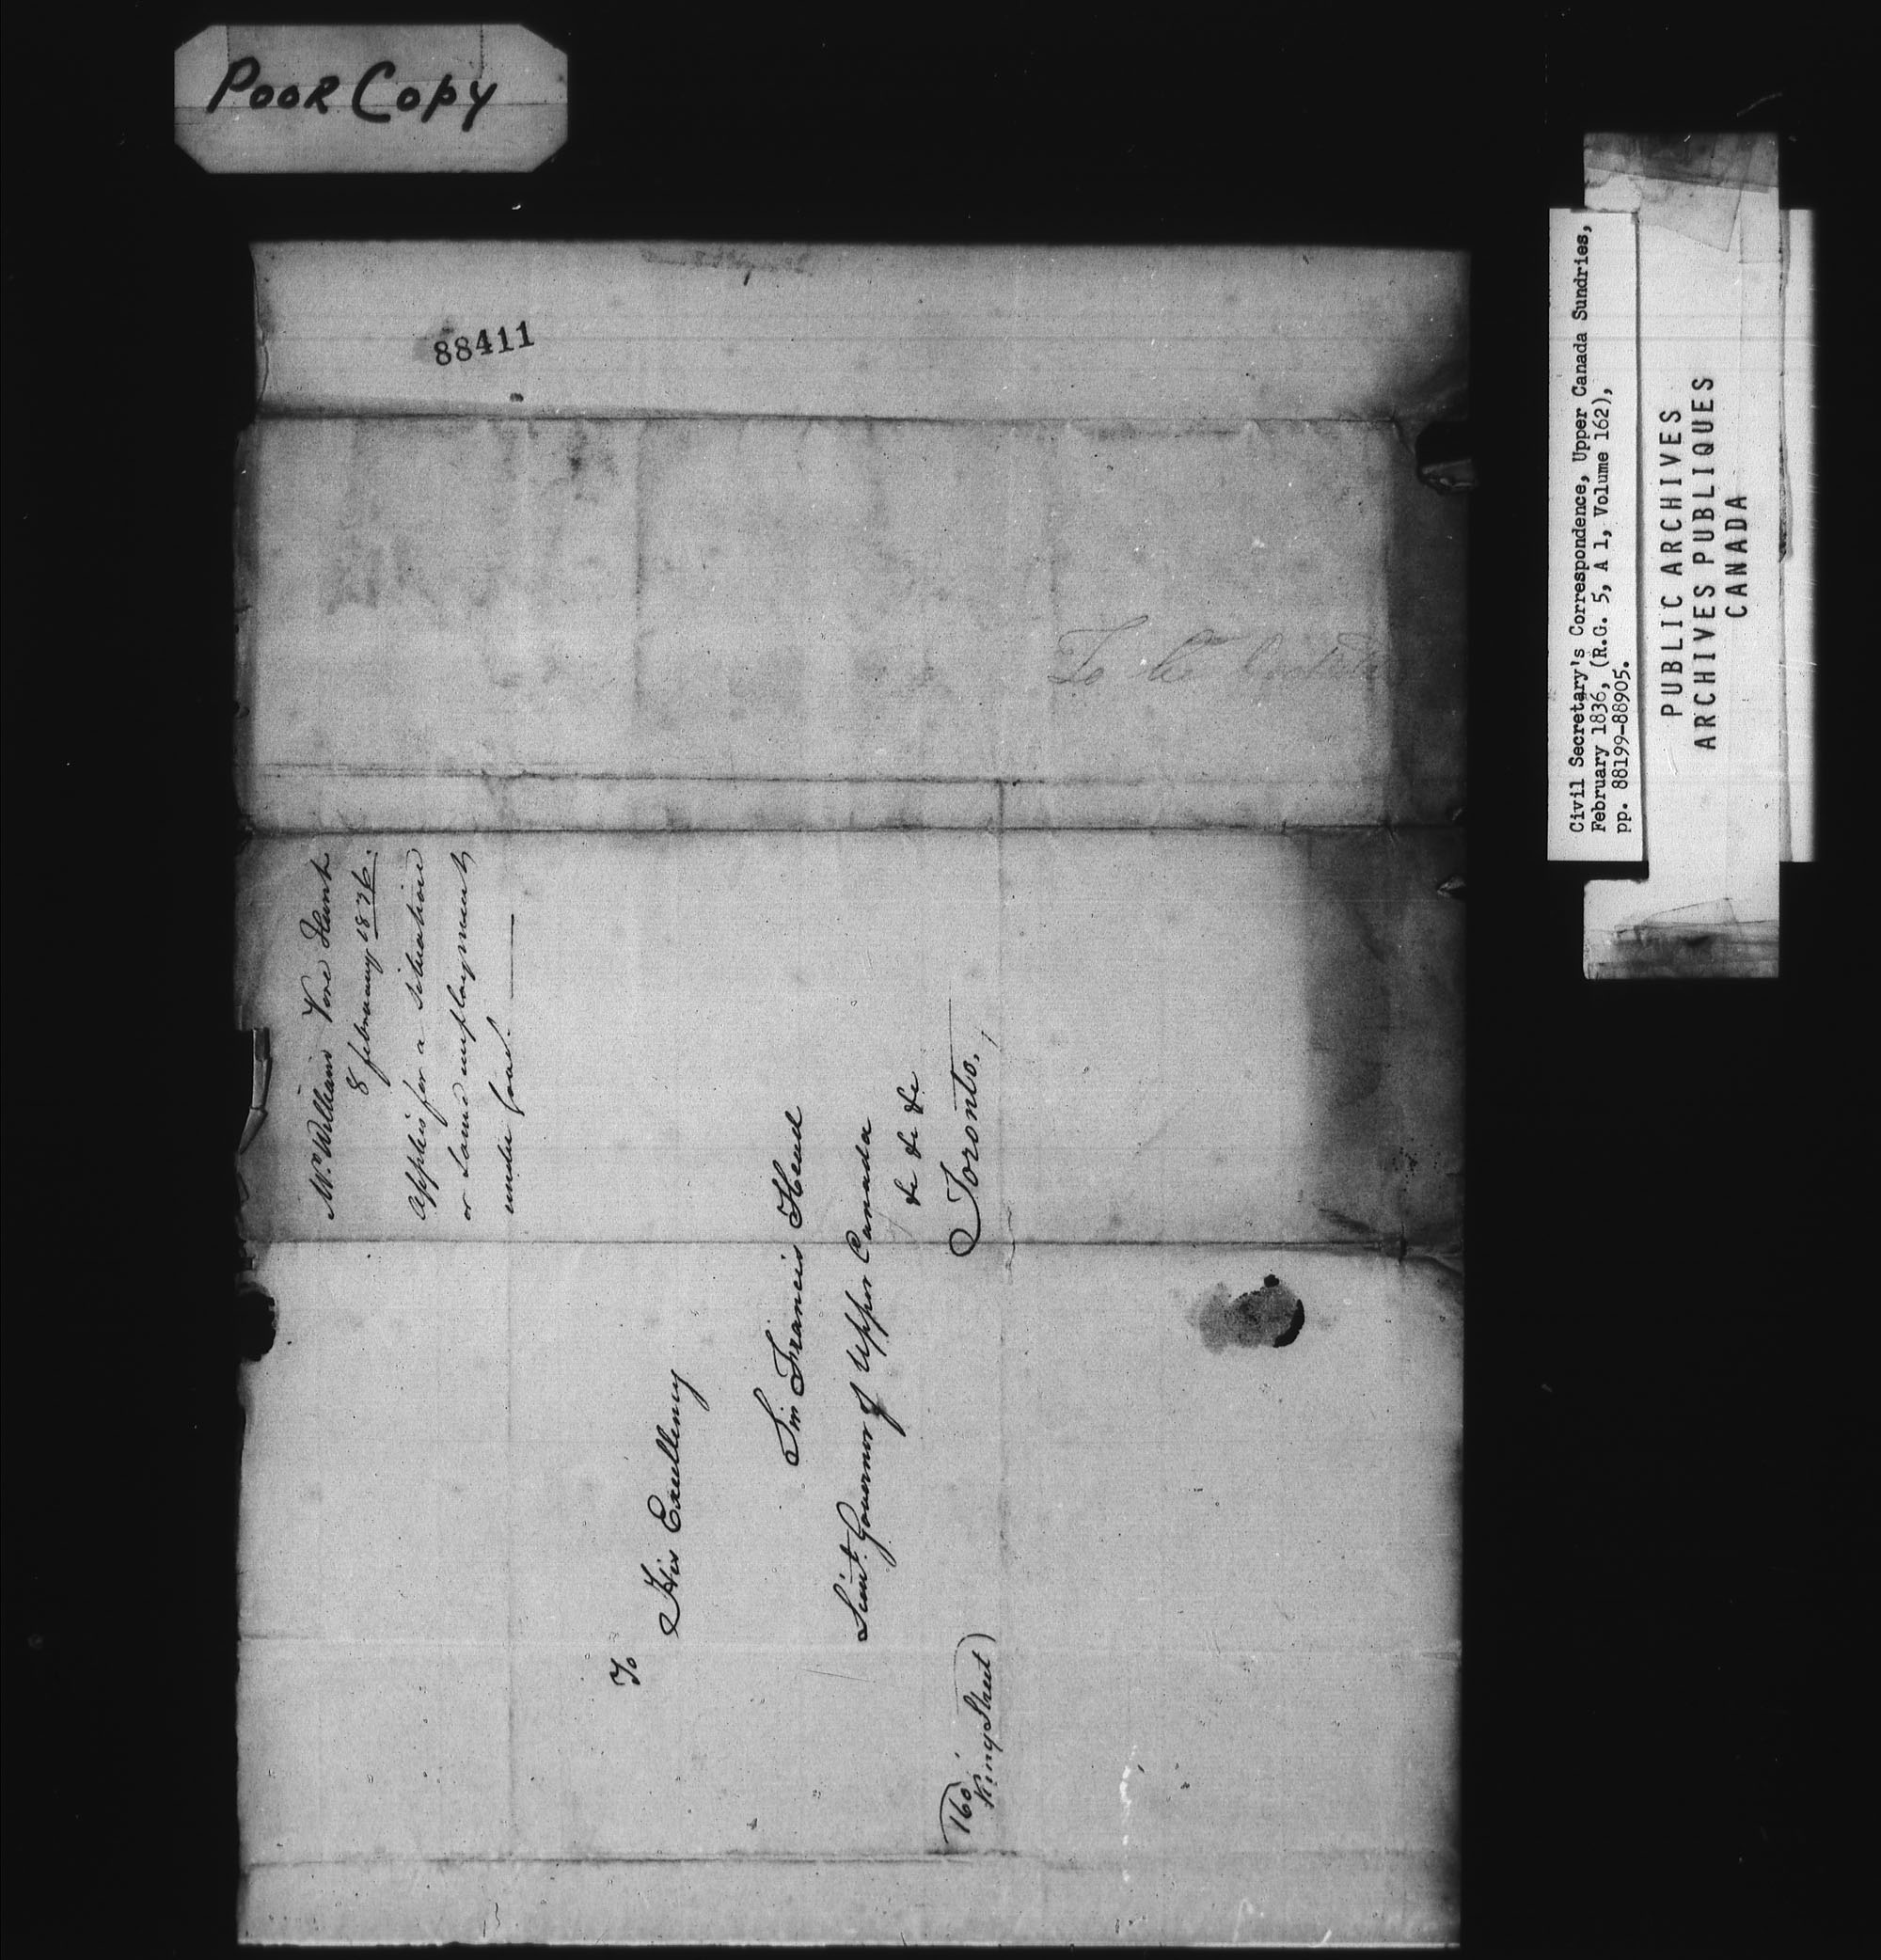 Poor Copy
88411
To be
Mr. William Vore Hunt
8 february 1836.
Applies for a situation
or some employment
under Govt.
To
His Excellency
Sir Francis Head
Lieut. Governor of Upper Canada
&c &c &c
Toronto.
160
King Street
Civil Secretary's Correspondence, Upper Canada Sundries,
February 1836, (R.G. 5, A 1, Volume 162),
pp. 88199-88905.
PUBLIC ARCHIVES
ARCHIVES PUBLIQUES
CANADA